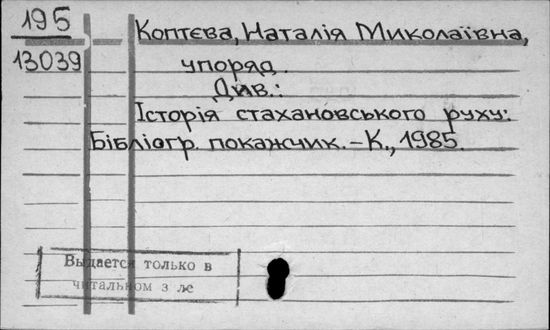 195
13039
Коптєва, Наталія Миколаївна,
упоряд.
Див.:
Історія стахановського руху:
Бібліогр. покажчик. – К., 1985.
Выдается только в
читальном з ле